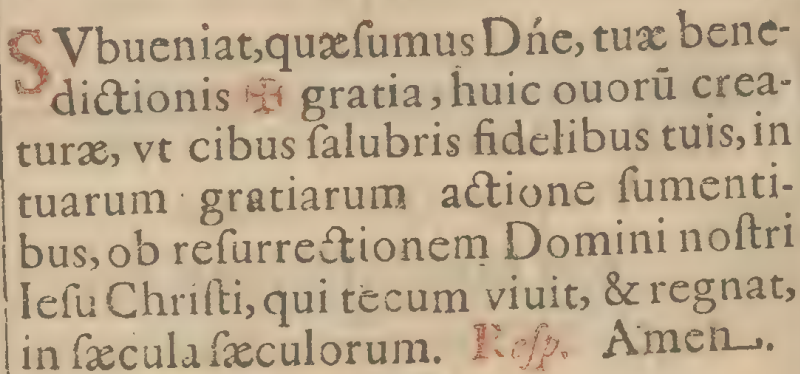 SVbueniat,quæſumus Dńe, tuæ bene-
dictionis ✠ gratia, huic ouorū crea-
turæ, vt cibus ſalubris fidelibus tuis, in
tuarum gratiarum actione ſumenti-
bus, ob reſurrectionem Domini noſtri
Ieſu Chriſti, qui tecum viuit, & regnat,
in ſæcula ſæculorum. Reſp. Amen.